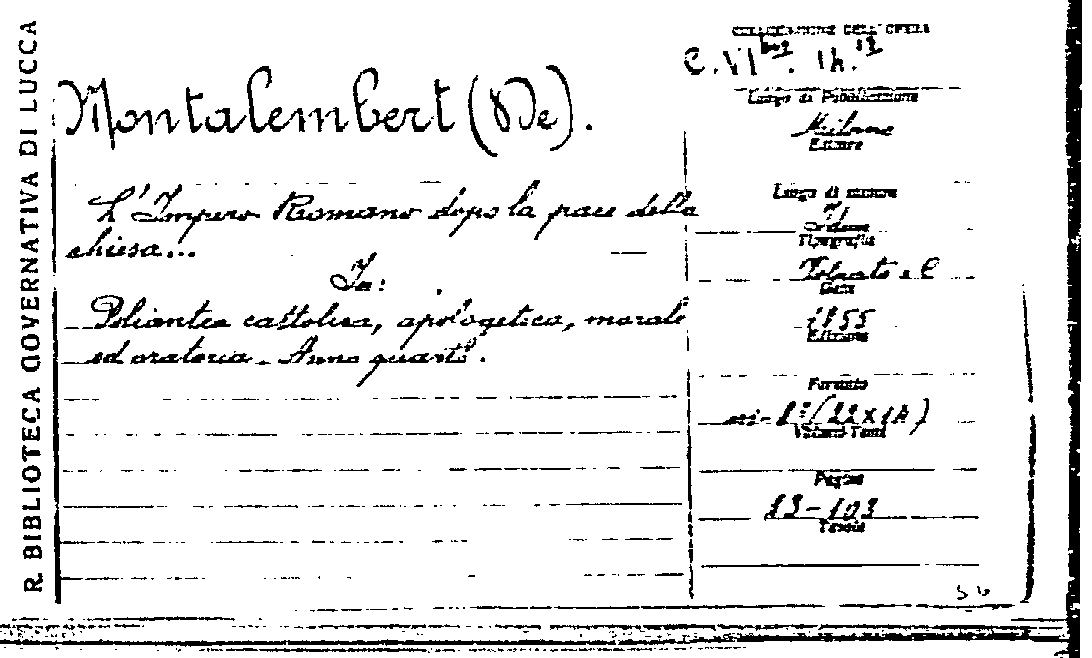 R. BIBLIOTECA GOVERNATIVA DI LUCCA
Montalembert (De).
L'Impero Romano dopo la pace della
chiesa...
In:
Poliantea cattolica, apologetica, morale
ed oratoria. Anno quarto.
COLLOCAZIONE DELL'OPERA
C.VI
Luogo di Pubblicazione
Milano
Editore
Luogo di stampa
Tipografia
e C
Data
1855
Edizione
Formato
in-8°(22x14)
Volumi-Tomi
Pagine
Tavole